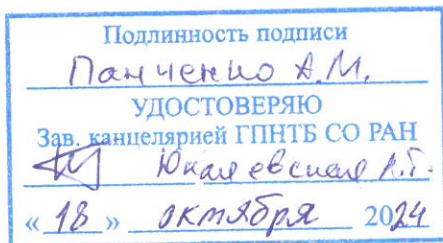 Подлинность подписи
Панченко А.М.
УДОСТОВЕРЯЮ
Зав. канцелярией ГПНТБ СО РАН
« 18 » октября 2024